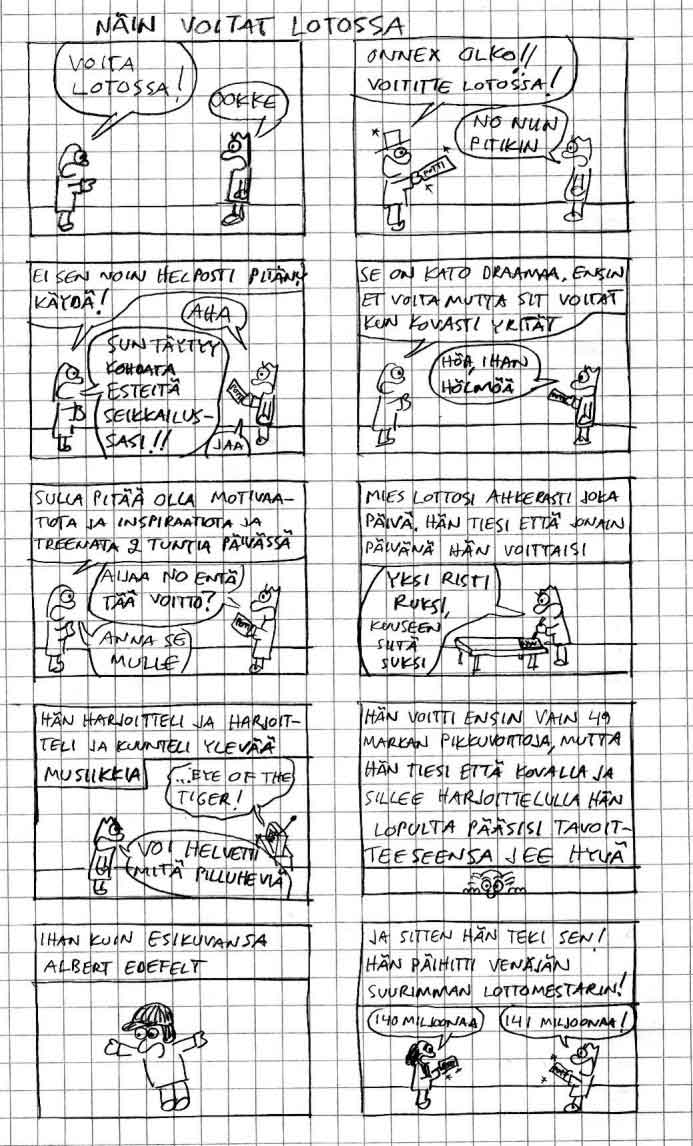 NÄIN VOITAT LOTOSSA
VOITA
LOTOSSA!
OOKKE
ONNEX OLKO!!
VOITITTE LOTOSSA!
NO NIIN
PITIKIN
POTTI
EI SEN NOIN HELPOSTI PITÄNY
KÄYDÄ!
AHA
SUN TÄYTYY
KOHDATA
ESTEITÄ
SEIKKAILUS-
SASI!!
JAA
POTTI
SE ON KATO DRAAMAA, ENSIN
ET VOITA MUTTA SIT VOITAT
KUN KOVASTI YRITÄT
HÖH, IHAN
HÖLMÖÄ
POTTI
SULLA PITÄÄ OLLA MOTIVAA-
TIOTA JA INSPIRAATIOTA JA
TREENATA 2 TUNTIA PÄIVÄSSÄ
AIJAA NO ENTÄ
TÄÄ VOITTO?
POTTI
ANNA SE
MULLE
MIES LOTTOSI AHKERASTI JOKA
PÄIVÄ. HÄN TIESI ETTÄ JONAIN
PÄIVÄNÄ HÄN VOITTAISI
YKSI RISTI
RUKSI,
KUUSEEN
SIITÄ
SUKSI
HÄN HARJOITTELI JA HARJOIT-
TELI JA KUUNTELI YLEVÄÄ
MUSIIKKIA
...EYE OF THE
TIGER!
VOI HELVETTI
MITÄ PILLUHEVIÄ
HÄN VOITTI ENSIN VAIN 49
MARKAN PIKKUVOITTOJA, MUTTA
HÄN TIESI ETTÄ KOVALLA JA
SILLEE HARJOITTELULLA HÄN
LOPULTA PÄÄSISI TAVOIT-
TEESEENSA JEE HYVÄ
IHAN KUIN ESIKUVANSA
ALBERT EDEFELT
JA SITTEN HÄN TEKI SEN!
HÄN PÄIHITTI VENÄJÄN
SUURIMMAN LOTTOMESTARIN!
140 MILJOONAA
141 MILJOONAA!
POTTI